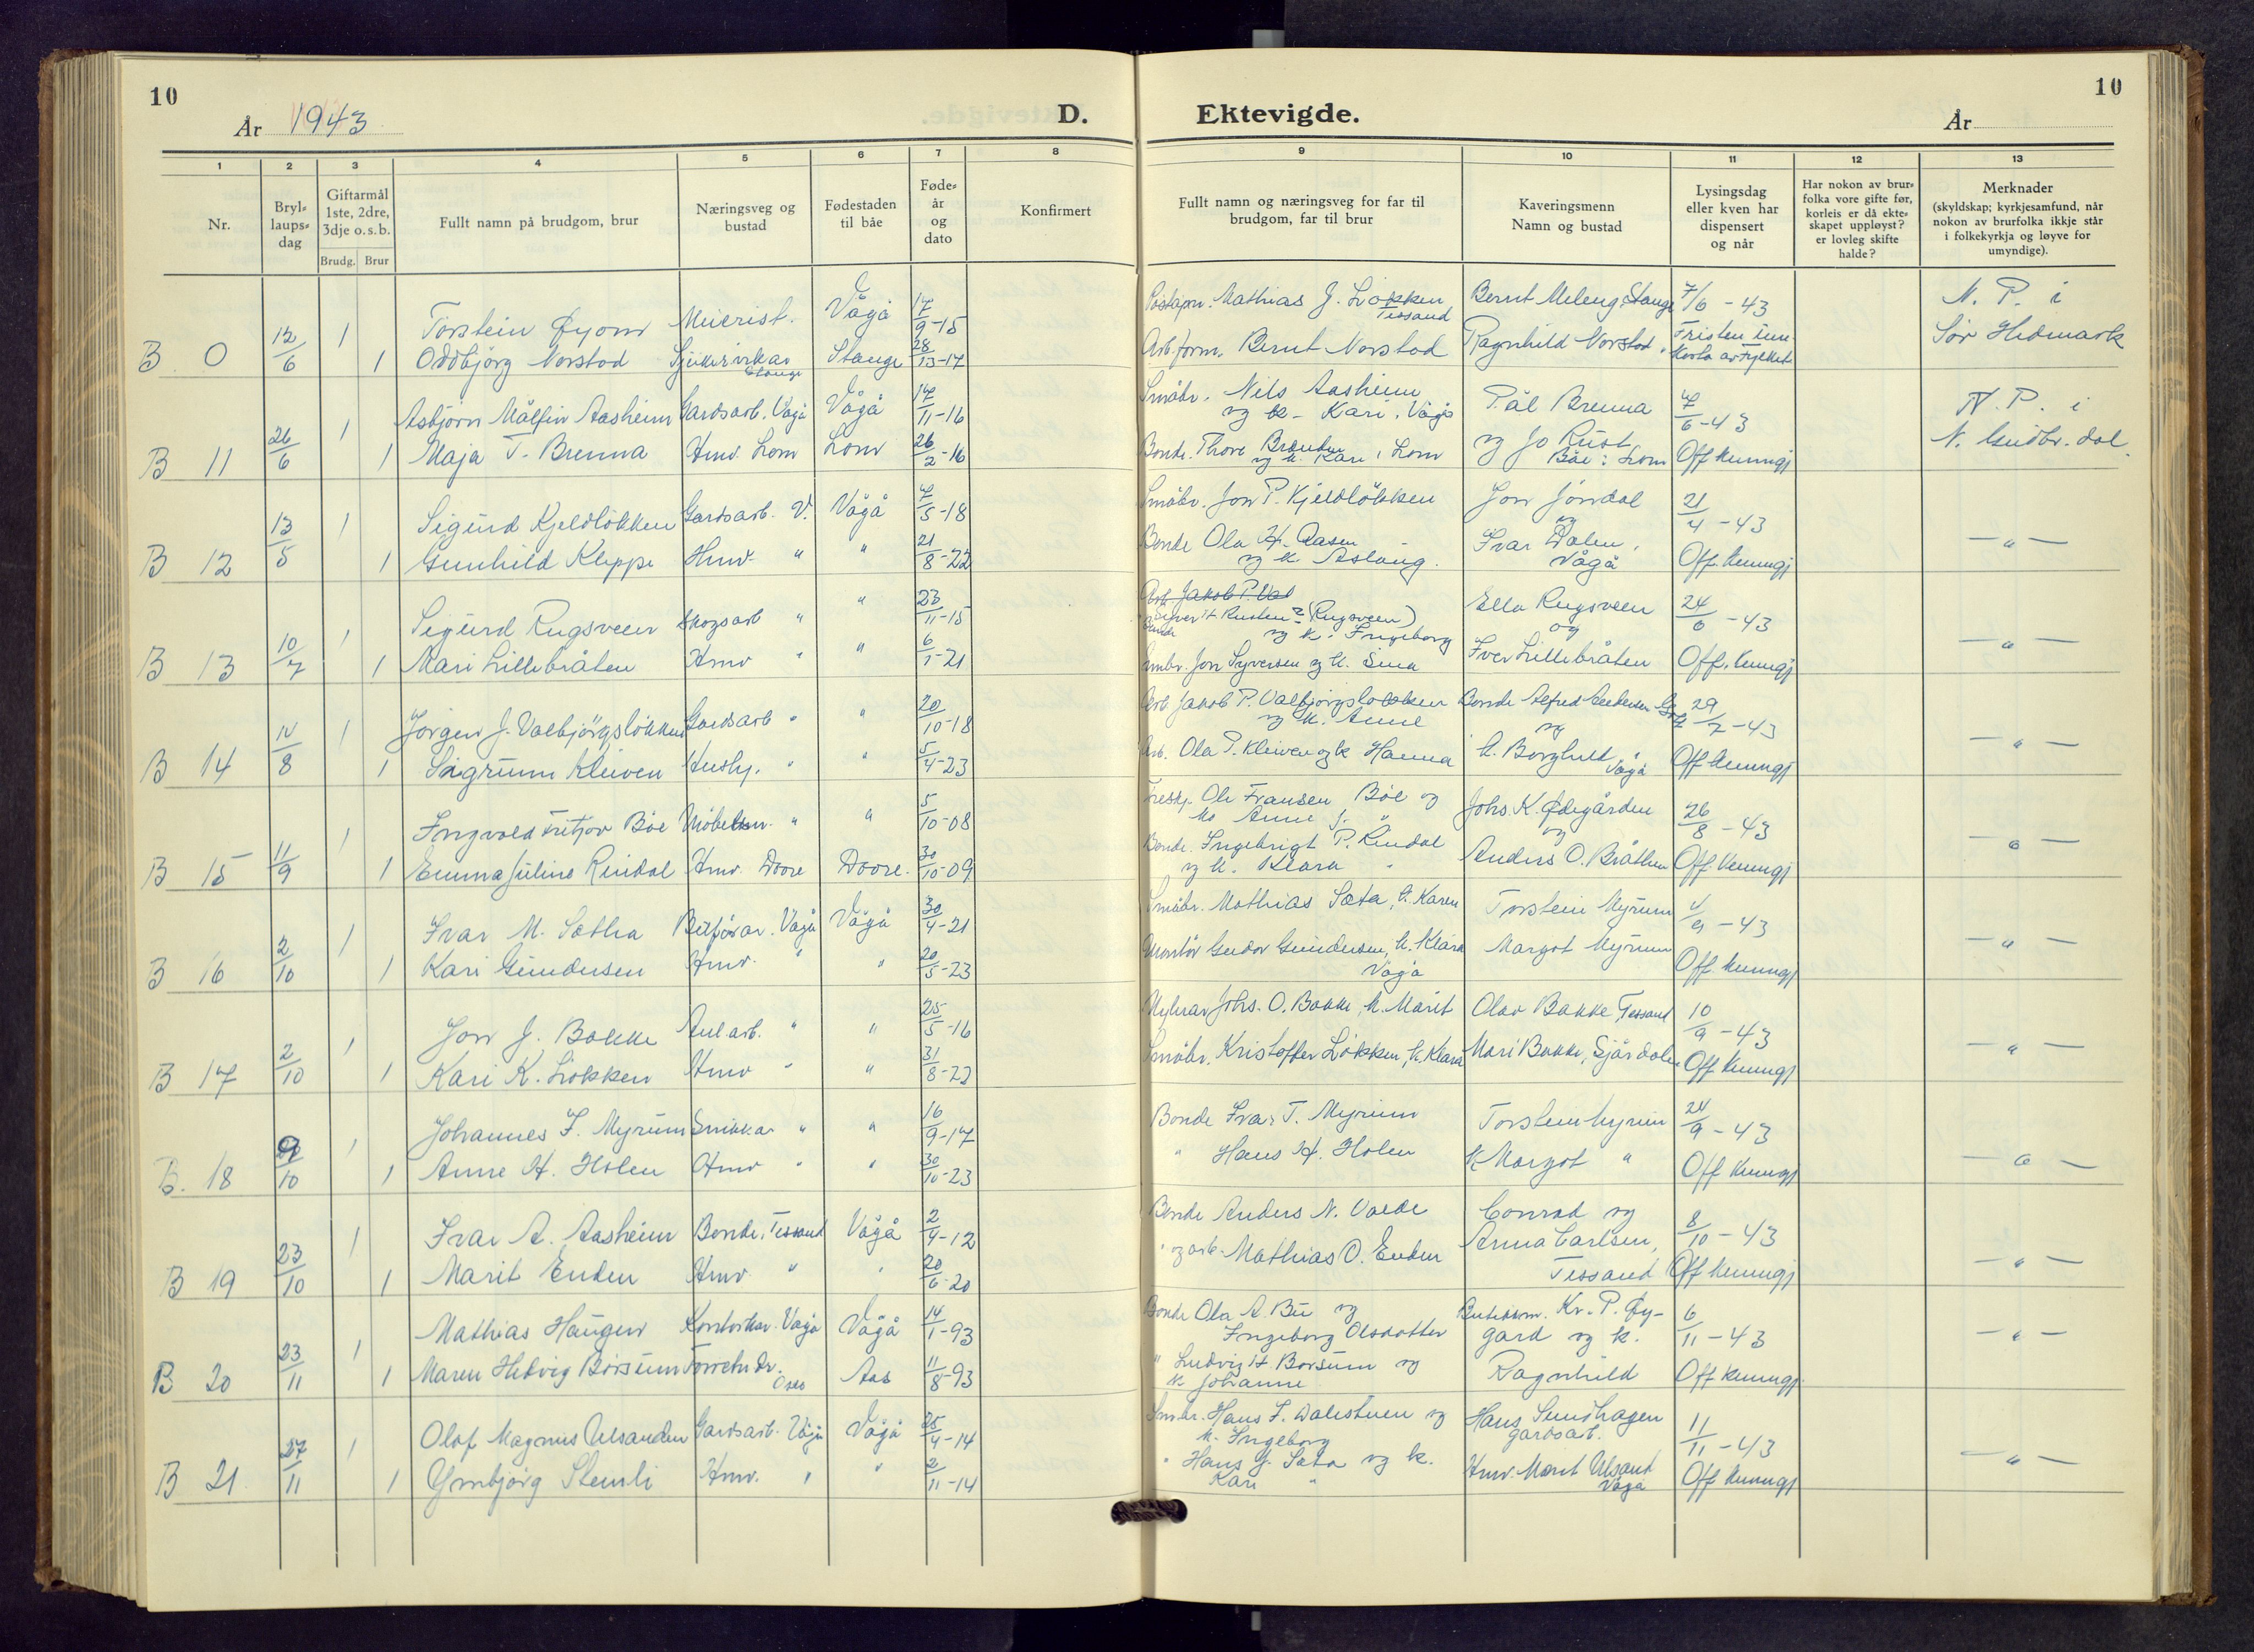 10
År 1943
D.
Ektevigde.
År
10
1 2 3 4 5 6 7 8 9 10 11 12 13
Nr.
Bryl-laups-dag
Giftarmål 1ste, 2dre, 3dje o.s.b.
Brudg. Brur
Fullt namn på brudgom, brur
Næringsveg og bustad
Fødestaden til båe
Føde-år og dato
Konfirmert
Fullt namn og næringsveg for far til brudgom, far til brur
Kaveringsmenn Namn og bustad
Lysingsdag eller kven har dispensert og når
Har nokon av brur-folka vore gifte før, korleis er då ekte-skapet uppløyst? er lovleg skifte halde?
Merknader (skyldskap; kyrkjesamfund, når nokon av brurfolka ikkje står i folkekyrkja og løyve for umyndige).
Torstein Øyom Meierist. Vågå 17/9-15 Mathias J. Løkken Tessand Bernt Meleng Stange 7/6-43 N. P. i
B 0 12/6 1 1 Oddbjörg Norstad Stange Stange 28/13-17 Arb.form. Bernt Norstad Ragnhild Norstad Sör Hedmark
Asbjörn Målfin Aasheim Gardsarb. Vågå Vågå 17/11-16 Småbr. Nils Aasheim og k. Kari, Vågå Pål Brenna 7/6-43 N. P. i
B 11 26/6 1 1 Maja T. Brenna Hmv. Lom Lom 26/2-16 Bonde. Thore og k. Kari, Lom og Jo Rust Båe i Lom Off kunngj N. Gudbr.dal
Sigurd Kjeldlökken Gardsarb. V. Vågå 7/5-18 Småbr. Jon P. Kjeldlökken Jon Jöndal og 21/4-43
B 12 13/5 1 1 Gunhild Kleppe Hmv. " " 21/8-22 Bonde Ola H. Aasen og k. Aslaug. Ivar Dalen, Vågå Off. kunngj — " —
Sigurd Rugsveen Skogsarb " " 23/11-15 (Rugsveen) og k. Ingeborg Ella Rugsveen og 24/6-43
B 13 10/7 1 1 Mari Lillebråten Hmv " " 6/1-21 Småbr. Jon Syversen og k. Sina Iver Lillebråten Off. kunngj — " —
Jörgen J. Valbjörgslökken Gardsarb " " 20/10-18 Arb Jakob P. Valbjörgslökken og k. Anne Bonde Alfred og 29/7-43
B 14 14/8 1 1 Sigrunn Kleiven Hushj. " " 5/4-23 Arb. Ola P. Kleiven og k Hanna k. Borghild Vågå Off kunngj — " —
Ingvald Fritjov Böe Möbelsn. " " 5/10-08 Ole Fransen Böe og Anne J. " Johs. K. Ødegården og 26/8-43
B 15 11/9 1 1 Emma Juline Rindal Hmv. Dovre Dovre. 30/10-09 Bonde. Ingebrigt P. Rindal og k. Klara " Anders O. Bråthen Off. kunngj — " —
Ivar M. Sætha Bilförar. Vågå Vågå 30/4-21 Småbr. Mathias Sæta, k. Karen Torstein Myrum 4/9-43
B 16 2/10 1 1 Kari Gundersen Hmv. " " 20/5-23 Montör Gudor Gundersen, k. Klara Vågå Margot Myrum Off kunngj — " —
Jon J. Bakke Anl.arb. " " 25/5-16 Johs. O. Bakke, k. Marit Olav Bakke Tessand 10/9-43
B 17 2/10 1 1 Kari K. Lökken Hmv " " 31/8-22 Småbr. Kristoffer Lökken, k. Klara Mari Bakke, Sjårdalen Off kunngj — " —
Johannes I. Myrum Snikkar " " 16/9-17 Bonde Ivar T. Myrum Torstein Myrum 24/9-43
B. 18 9/10 1 1 Anne H. Holen Hmv " " 30/10-23 " Hans H. Holen k Margot " Off kunngj — " —
Ivar A. Aasheim Bonde, Tessand Vågå 2/4-12 Bonde Anders N. Valde Conrad og 8/10-43
B 19 23/10 1 1 Marit Enden Hmv. " " 20/6-20 " og arb. Mathias O. Enden Anna Carlsen, Tessand Off kunngj — " —
Mathias Haugen Kontorkar. Vågå Vågå 14/1-93 Bonde Ola A. Bu og Ingeborg Olsdotter Kr. P. Øygard og k. 6/11-43 — " —
B 20 23/11 1 1 Maren Hedvig Börsum Oslo Aas 11/8-93 " Ludvig H Borsum og k Johanne Ragnhild Off kunngj.
Olaf Magnus Ulsanden Gardsarb. Vågå Vågå 25/4-14 Småbr. Hans I. Dalestuen og k. Ingeborg Hans Sundhagen gardsarb. 11/11-43
B 21 27/11 1 1 Ymbjörg Stemli Hmv. " " 2/11-14 " Hans J. Sæta og k. Kari " Hmv. Marit Ulsand Vågå Off kunngj — " —